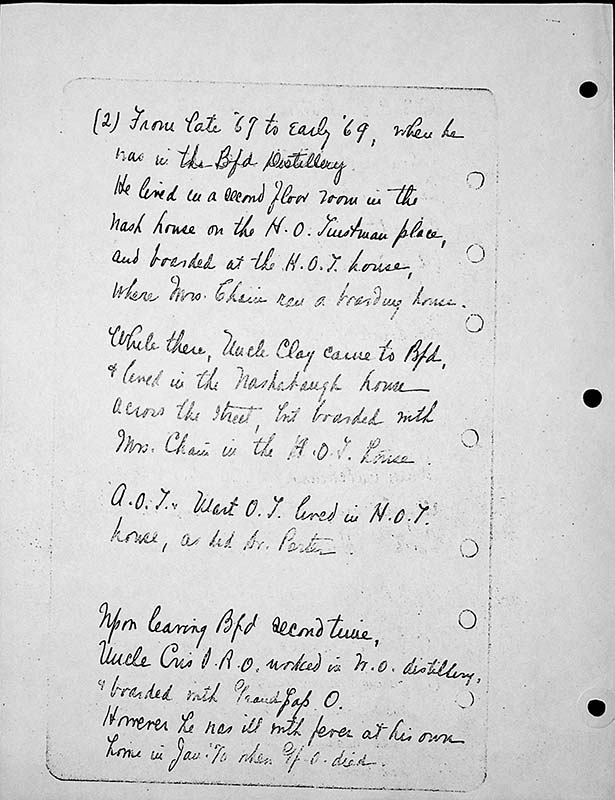 (2) From late '67 to early '69, when he
was in the Bfd Distillery.
He lived in a second floor room in the
Nash house on the H.O. Tinstman place,
and boarded at the H.O.T. house,
where Mrs. Chain ran a boarding house.
While there, Uncle Clay came to Bfd,
& lived in the Nashabaugh house
across the street, but boarded with
Mrs. Chain in the H.O.T. house.
A.O.T. Mart O.T. lived in H.O.T.
house, as did Dr. Porter.
Upon leaving Bfd second time,
Uncle Cris S.R.O. worked in W.O. distillery,
& boarded with Grandpap O.
However he was ill with fever at his own
home in Jan '70 when Gf O. died.